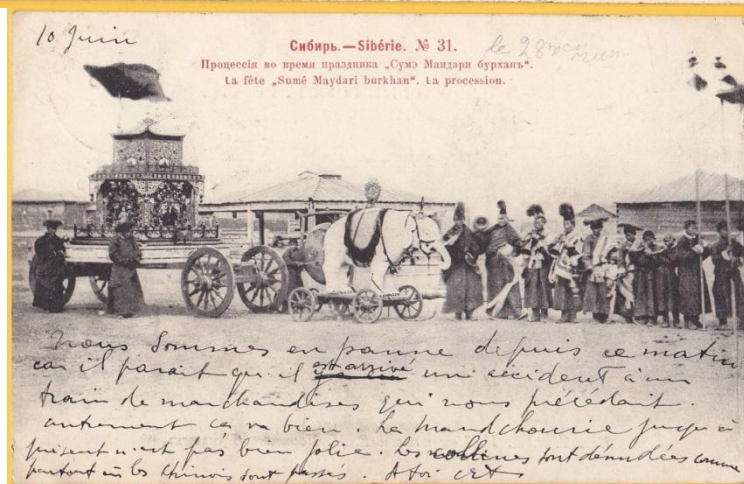 10 Juin
Сибирь.—Sibérie. № 31.
le 28
Процессія во время праздника „Сумэ Мандари бурханъ".
La fête „Sumé Maydari burkhan". La procession.
Nous sommes en panne depuis ce matin
car il parait qu'il est arrivé un accident à un
train de marchandises qui nous précédait.
autrement ça va bien. La Mandchourie jusqu'à
présent n'est pas bien jolie. Les collines sont dénudées comme
partout où les Chinois sont passés. A toi